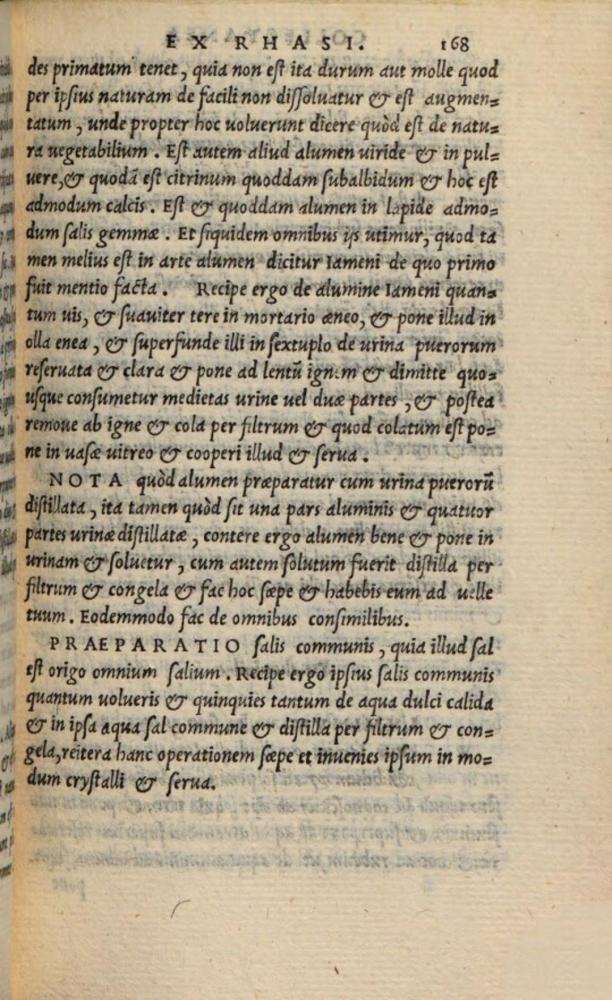 EX RHASI. 168
des primatum tenet, quia non est ita durum aut molle quod
per ipsius naturam de facili non dissoluatur & est augmen=
tatum, unde propter hoc uoluerunt dicere quòd est de natu=
ra uegetabilium. Est autem aliud alumen uiride & in pul=
uere, & quodā est citrinum quoddam subalbidum & hoc est
admodum calcis. Est & quoddam alumen in lapide admo=
dum salis gemmæ. Et siquidem omnibus ijs utimur, quod ta
men melius est in arte alumen dicitur Iameni de quo primo
fuit mentio facta. Recipe ergo de alumine Iameni quan=
tum uis, & suauiter tere in mortario æneo, & pone illud in
olla enea, & superfunde illi in sextuplo de urina puerorum
reseruata & clara & pone ad lentū ignem & dimitte quo=
usque consumetur medietas urine uel duæ partes, & postea
remoue ab igne & cola per filtrum & quod colatum est po=
ne in uase uitreo & cooperi illud & serua.
NOTA quòd alumen præparatur cum urina puerorū
distillata, ita tamen quòd sit una pars aluminis & quatuor
partes urinæ distillatæ, contere ergo alumen bene & pone in
urinam & soluetur, cum autem solutum fuerit distilla per
filtrum & congela & fac hoc sæpe & habebis eum ad uelle
tuum. Eodemmodo fac de omnibus consimilibus.
PRAEPARATIO salis communis, quia illud sal
est origo omnium salium. Recipe ergo ipsius salis communis
quantum uolueris & quinquies tantum de aqua dulci calida
& in ipsa aqua sal commune & distilla per filtrum & con=
gela, reitera hanc operationem sæpe et inuenies ipsum in mo=
dum crystalli & serua.